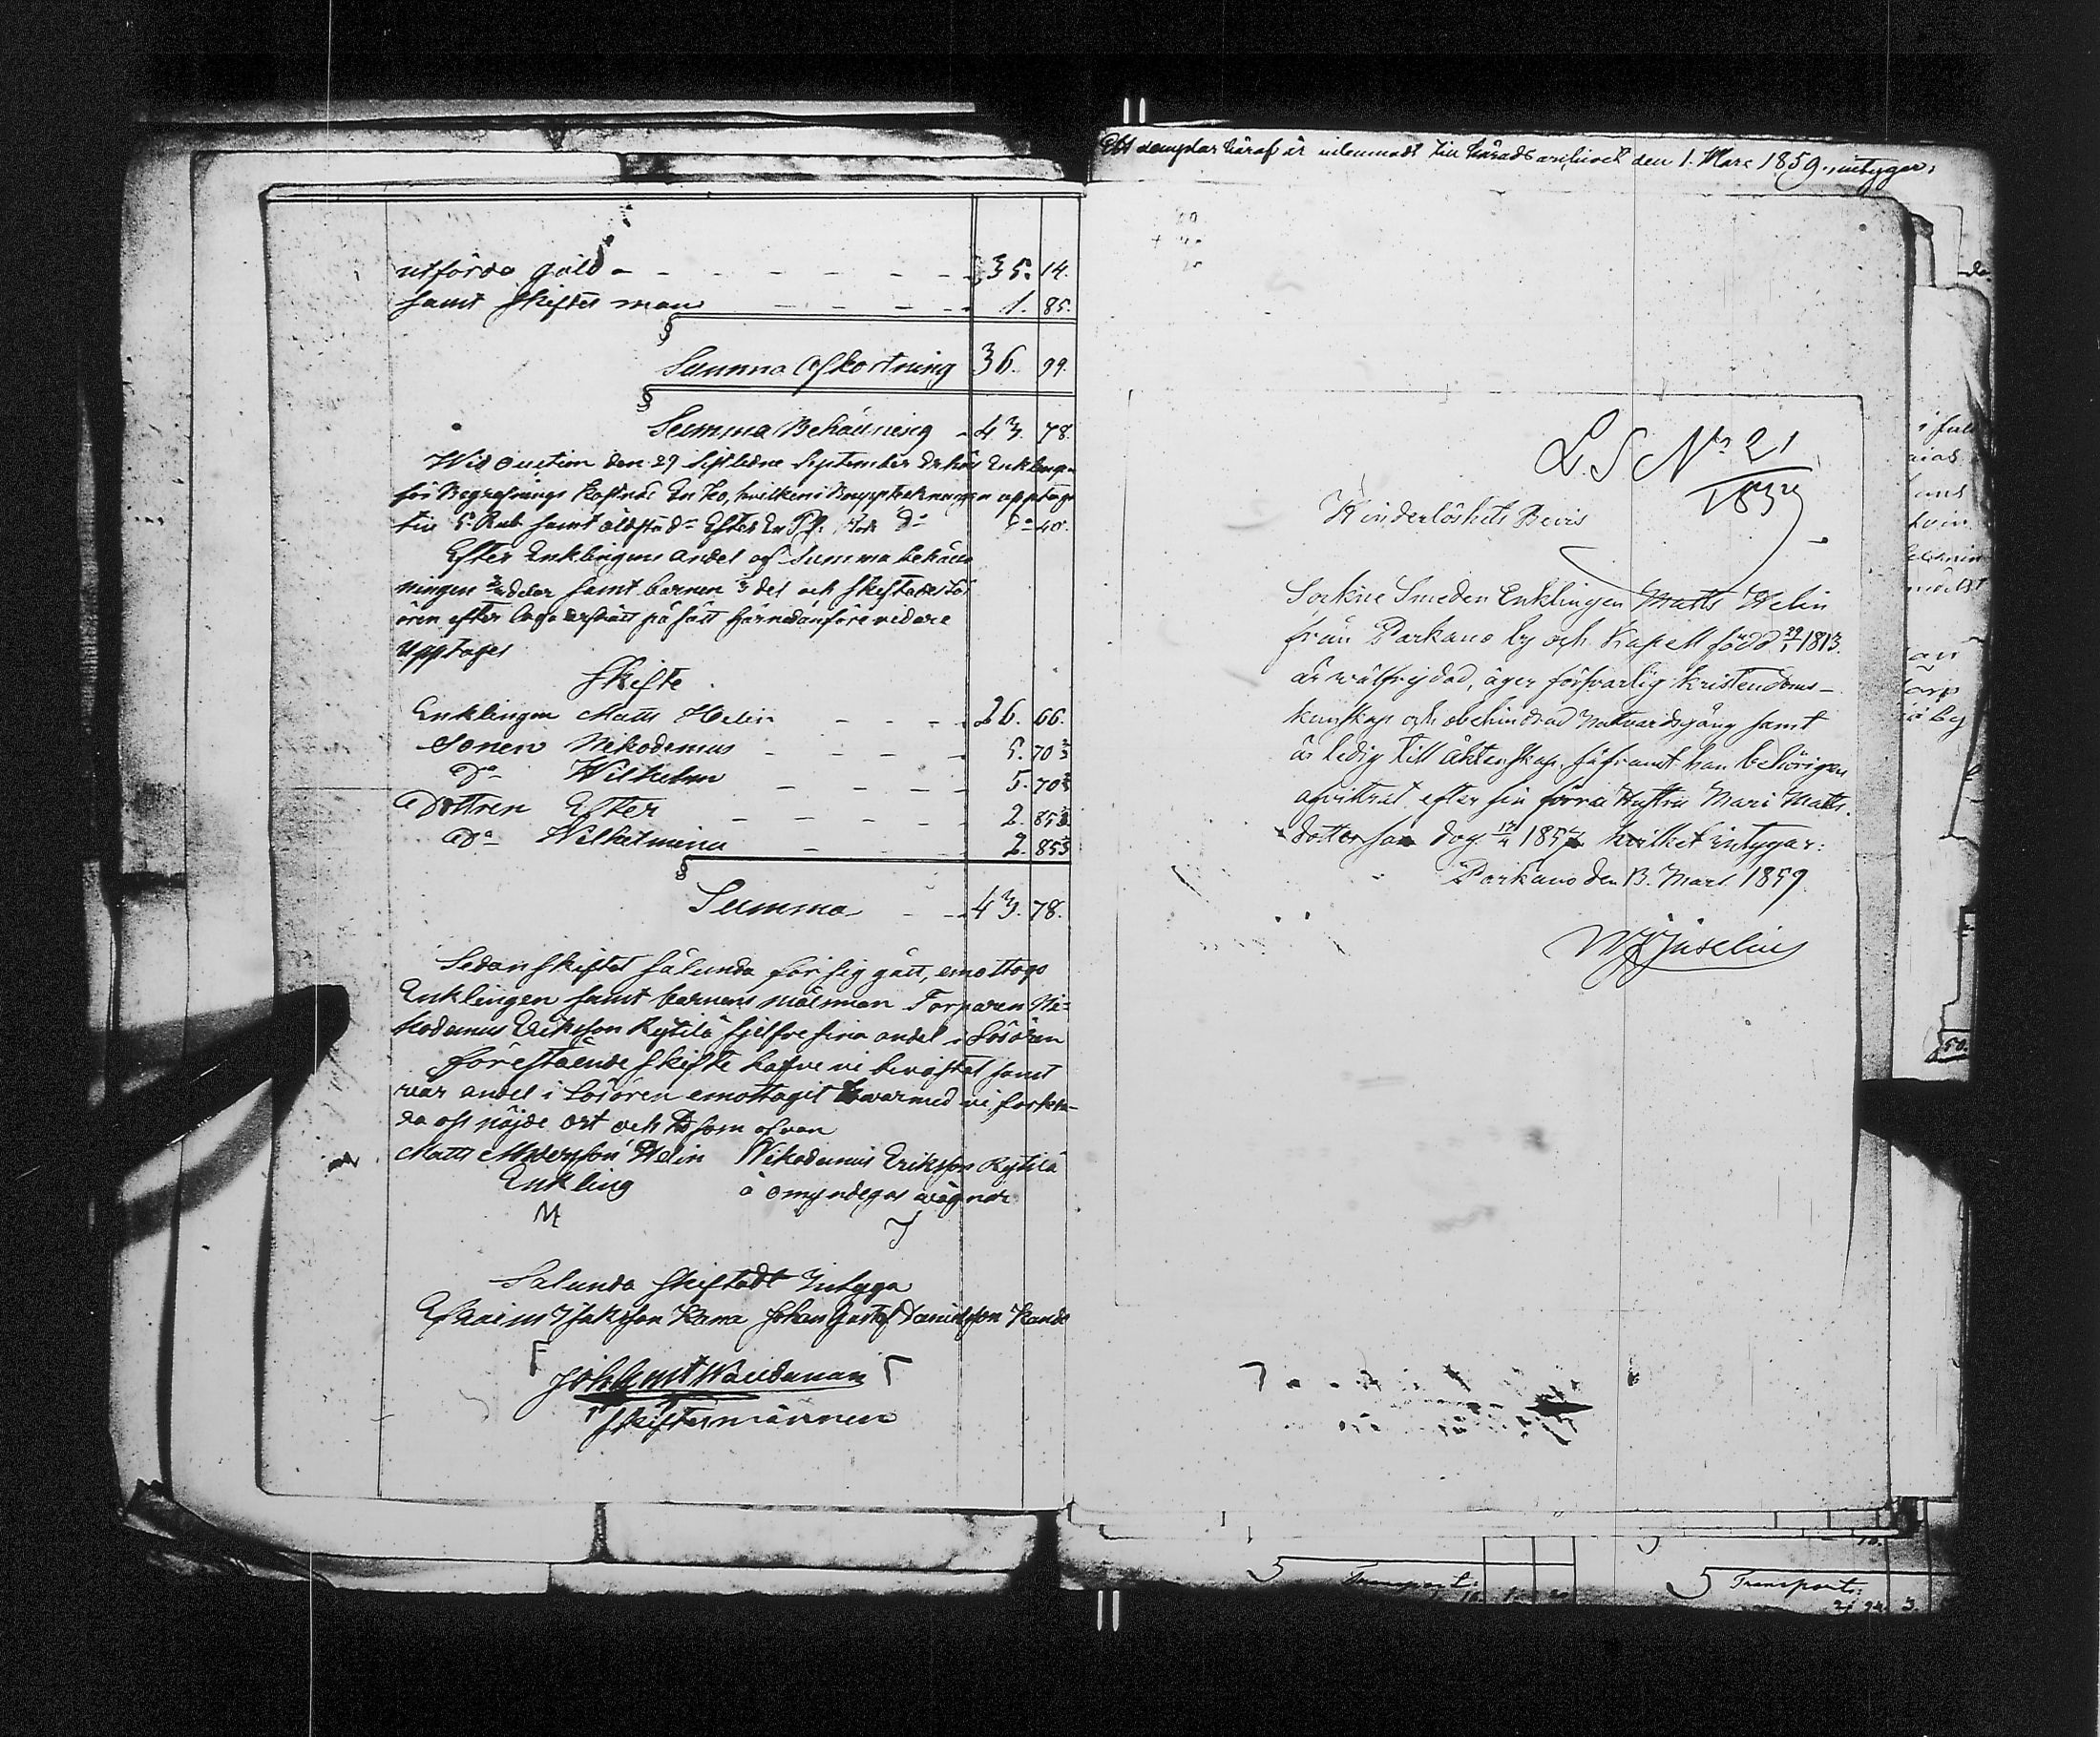 utförda gäld - 35. 14.
samt skiftes man 1. 85.
Summa Afkortning 36. 99.
Summa Behållning 43. 78.
Wid auction den 29 sistledne September Enklingen
för Begrafnings kostnad En Ko, hvilken i Bouppteckningen upptogs
till 5. Rub. samt
Efter Enklingens andel af Summa behåll
ningen samt barnen del och skiftades lös
ören efter på sätt härnedanföre vidare
upptages
Skifte
Enklingen Matts Helin 26. 66.
Sonen Nikodemus 5. 70 2/3
Do Wilhelm 5. 70 2/3
Dottren Ester 2. 85 1/3
Do Wilhelmina 2. 85 1/3
Summa 43. 78.
Sedan skiftet sålunda för sig gått, emottogo
Enklingen samt barnens målsman Torparen Ni=
kodemus Eriksson Rytilä sjelfve sina andel i Lösören
Förestående skifte hafve vi bevistat samt
vår andel i Lösören emottagit hvarmed vi förkla-
ra oss nöjde ort och tid som ofvan
Matts Andersson Helin Nikodemus Eriksson Rytilä
Enkling å omyndigas vägnar
Sålunda skiftadt Intyga
Efraim Isaksson Kana Johan Gustaf Danielsson Kanda
skiftesmännen
Ett exemplar häraf är inlemnadt till häradsarchivet den 1. Mars 1859., intygar:
L. S No 21
1859
Hinderlöshets Bevis
Sockne Smeden Enklingen Matts Helin
från Parkano by och Kapell född 29/1 1813.
är wälfrejdad, äger försvarlig kristendoms-
kunskap och obehindrad Nattvardsgång samt
är ledig till äktenskap, såframt han behörigen
afvittrat efter sin förra Hustru Mari Matts-
dotter som dog 1857 hvilket intygar:
Parkano den 13. Mars 1859.
Transport:
Transport: